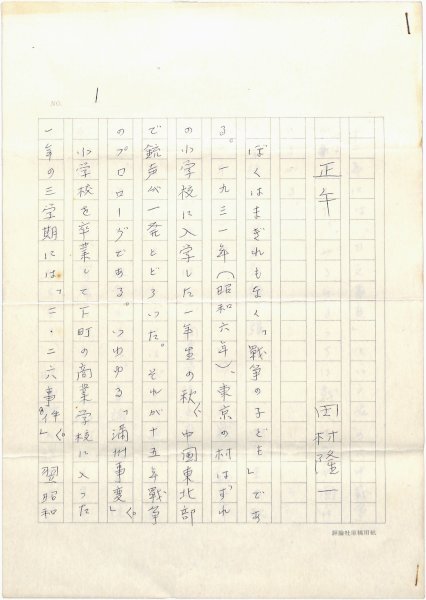 NO.
1
正午
田村隆一
ぼくはまぎれもなく「戦争の子ども」であ
る。一九三一年(昭和六年)、東京の村はずれ
の小学校に入学した一年生の秋、中国東北部
で銃声が一発とどろいた。それが十五年戦争
のプロローグである。いわゆる「満州事変」。
小学校を卒業して下町の商業学校に入った
一年の三学期には、「二・二六事件」。翌昭和
評論社原稿用紙